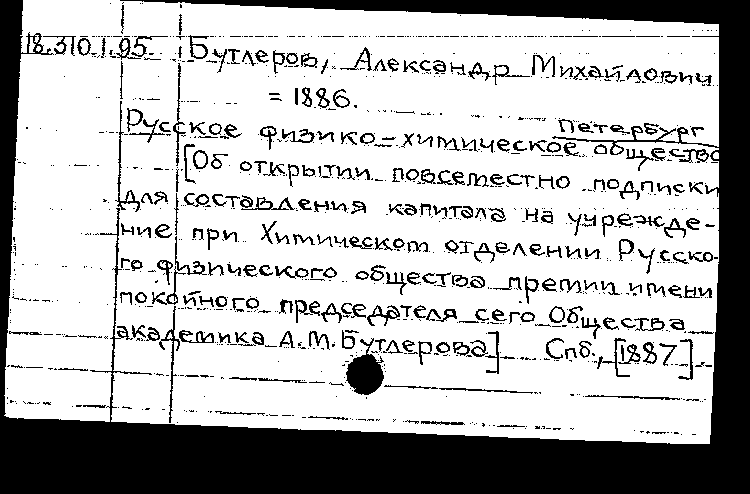 18.310.1.95. Бутлеров, Александр Михайлович
= 1886.
Петербург
Русское физико-химическое общество
[Об открытии повсеместно подписки
для составления капитала на учрежде-
ние при Химическом отделении Русско-
го физического общества премии имени
покойного председателя сего Общества
академика А.М. Бутлерова] Спб., [1887].